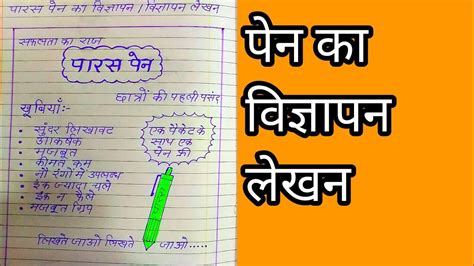 पारस पेन का विज्ञापन । विज्ञापन लेखन
सफलता का राज
पारस पेन
छात्रों की पहली पसंद
खूबियाँ:-
• सुंदर लिखावट
• आकर्षक
• मजबूत
• कीमत कम
• नौ रंगों में उपलब्ध
• इंक ज्यादा चले
• इंक न फैले
• मजबूत ग्रिप
एक पैकेट के
साथ एक
पेन फ्री
लिखते जाओ लिखते जाओ.....
पेन का
विज्ञापन
लेखन